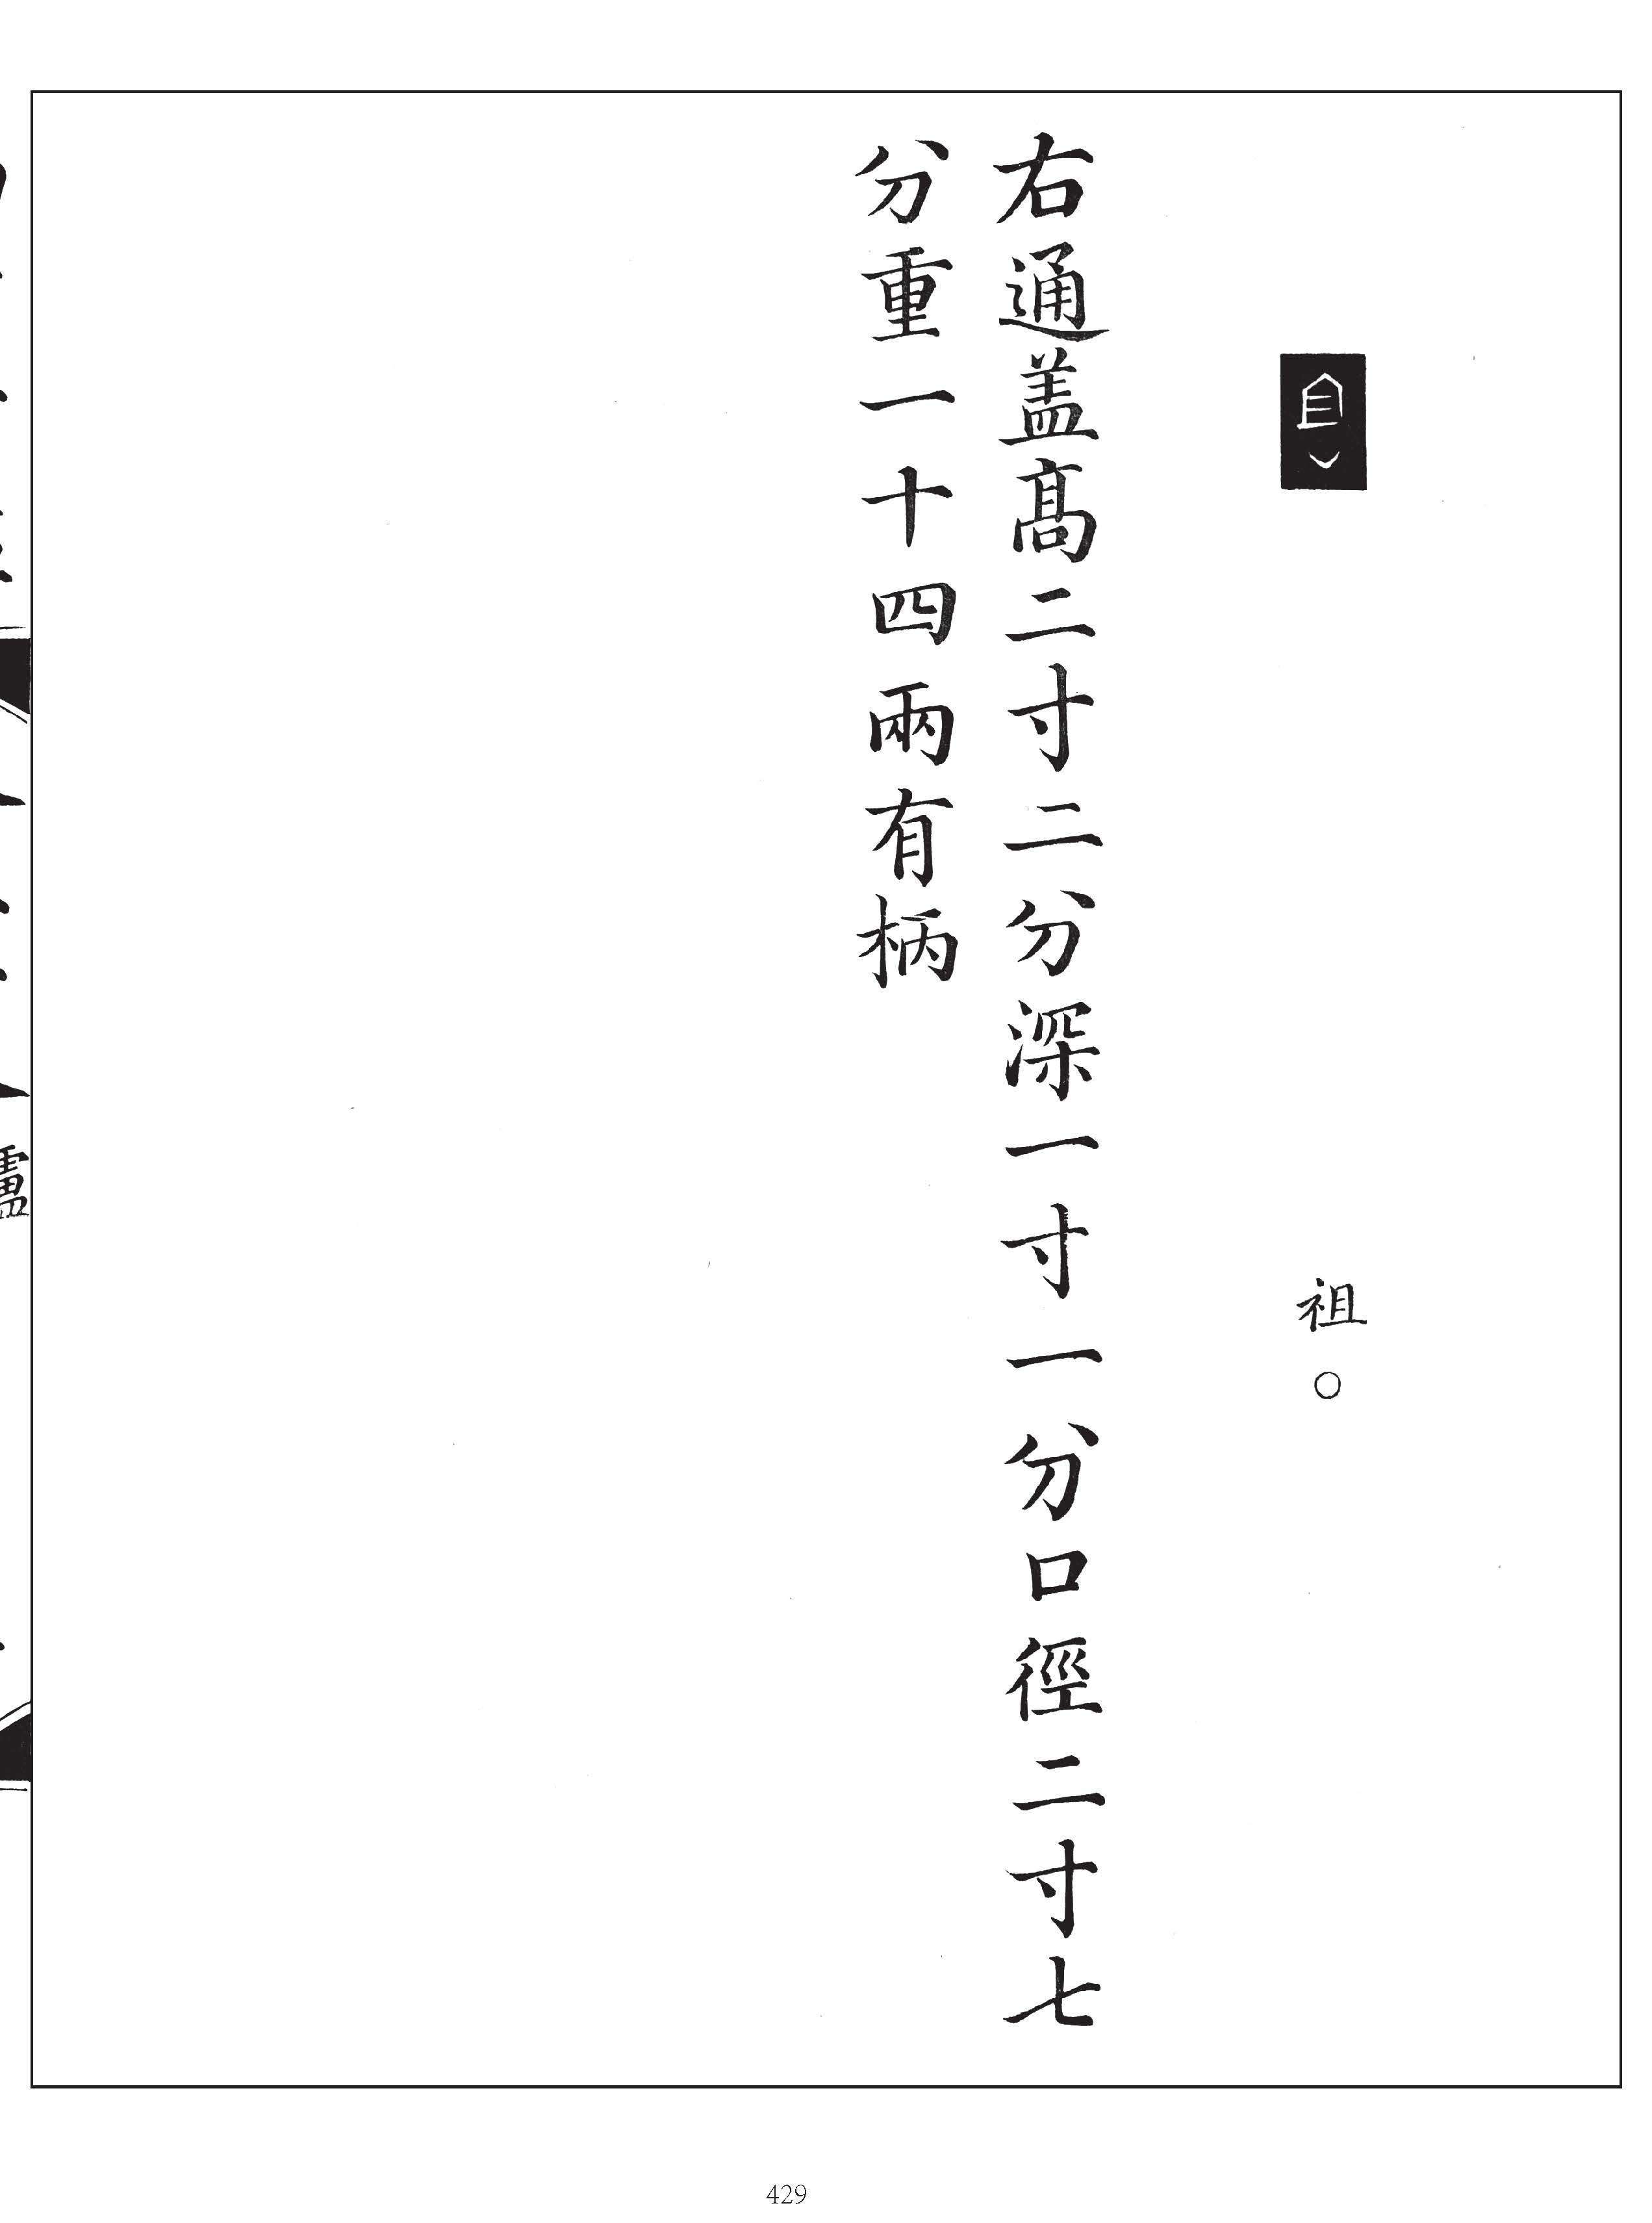 祖○
右通盖髙二寸二分深一寸一分口徑二寸七
分重一十四兩有柄
429